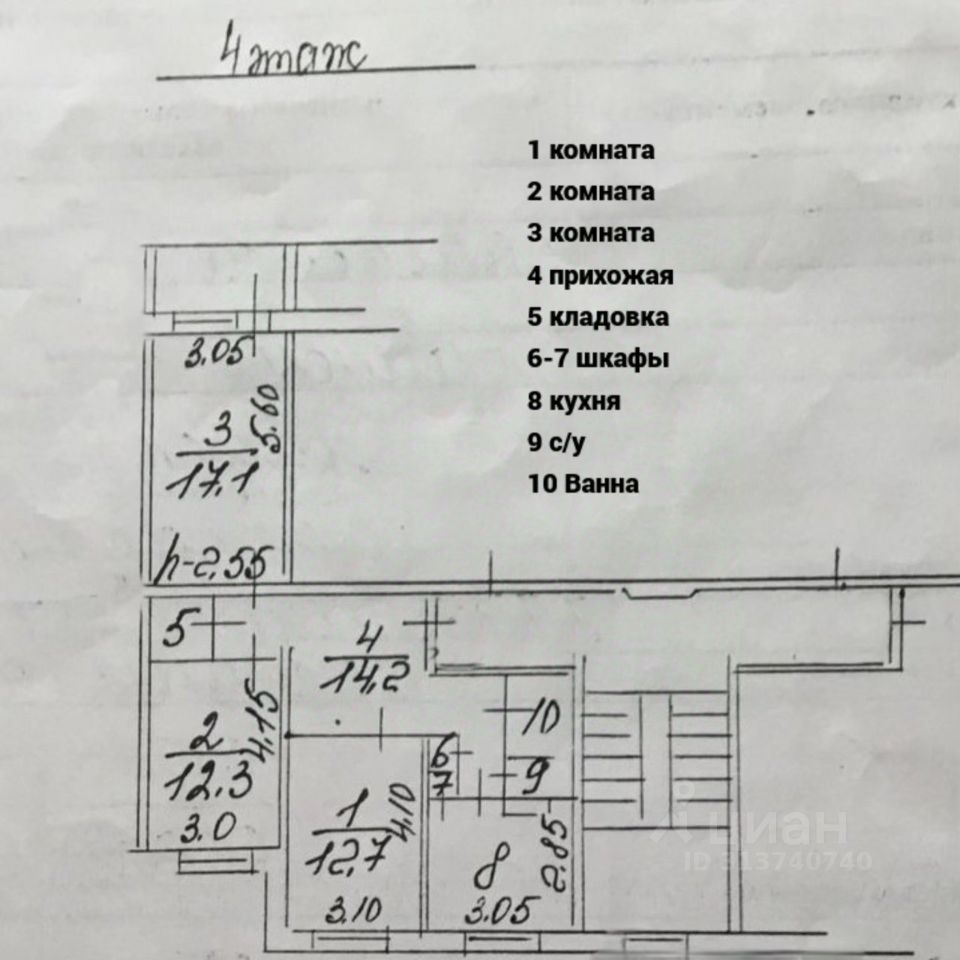 4 этаж
1 комната
2 комната
3 комната
4 прихожая
5 кладовка
6-7 шкафы
8 кухня
9 с/у
10 Ванна
3.05
5.60
3
17,1
h-2,55
5
4
14,2
2
12,3
4,15
3.0
10
9
6
7
1
12,7
4,10
3.10
8
2.85
3.05
циан
ID 313740740